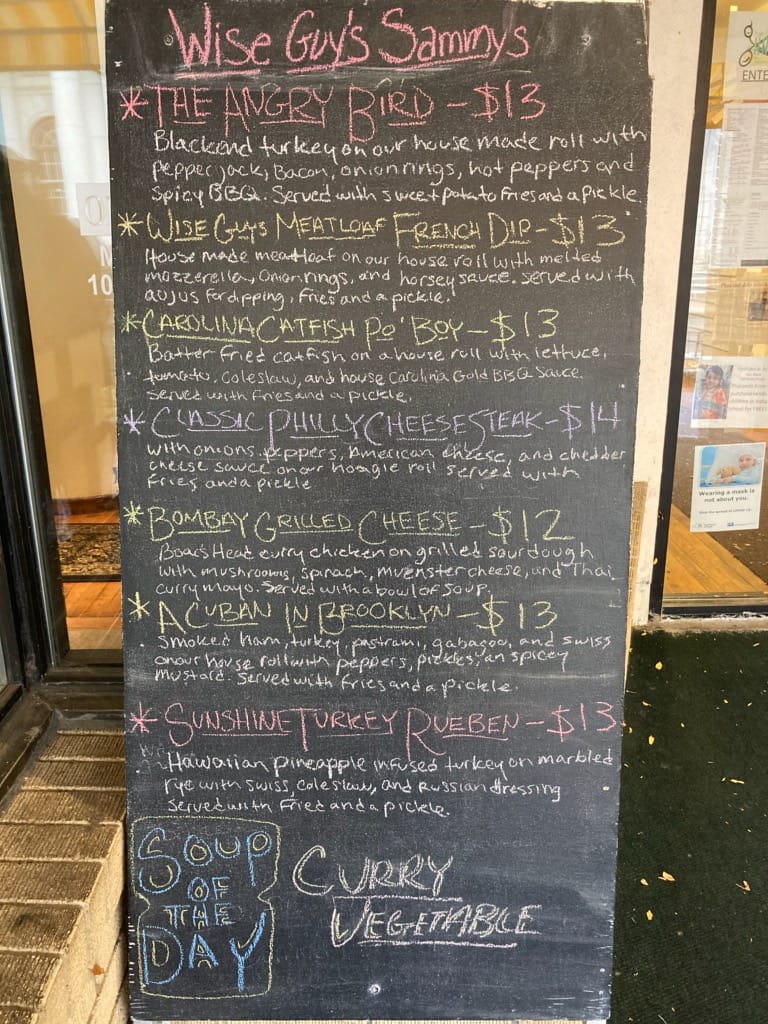 Wise Guy's Sammys
* THE ANGRY BIRD - $13
Blackend turkey on our house made roll with
pepper jack, Bacon, onion rings, hot peppers and
spicy BBQ. Served with sweet potato fries and a pickle.
* WISE GUYS MEATLOAF FRENCH DIP - $13
House made meatloaf on our house roll with melted
mozzerella, onion rings, and horsey sauce. served with
aujus for dipping, fries and a pickle.
* CAROLINA CATFISH PO' BOY - $13
Batter fried catfish on a house roll with lettuce,
tomato, coleslaw, and house Carolina Gold BBQ sauce.
Served with fries and a pickle.
* CLASSIC PHILLY CHEESESTEAK - $14
with onions, peppers, American cheese, and chedder
cheese sauce on our hoagie roll served with
fries and a pickle
* BOMBAY GRILLED CHEESE - $12
Boars Head curry chicken on grilled sourdough
with mushrooms, spinach, muenster cheese, and Thai
curry mayo. Served with a bowl of soup.
* A CUBAN IN BROOKLYN - $13
Smoked ham, turkey, pastrami, gabagoo, and swiss
on our house roll with peppers, pickles, an spicey
mustard. Served with fries and a pickle.
* SUNSHINE TURKEY RUEBEN - $13
Hawaiian pineapple infused turkey on marbled
rye with swiss, coleslaw, and Russian dressing
Served with fried and a pickle.
SOUP
OF
THE
DAY
CURRY
VEGETABLE
10
ENTE
Wearing a mask is
not about you.